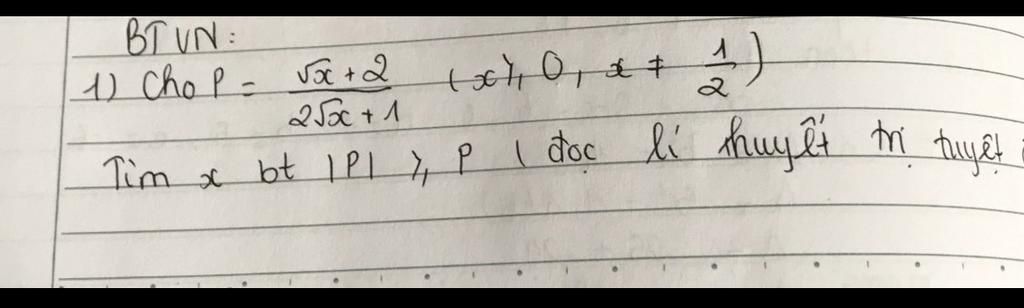 BTVN:
1) Cho P = (√x + 2)/(2√x + 1) (x ≥ 0, x ≠ 1/2)
Tìm x bt |P| ≥ P ( đọc lí thuyết trị tuyệt